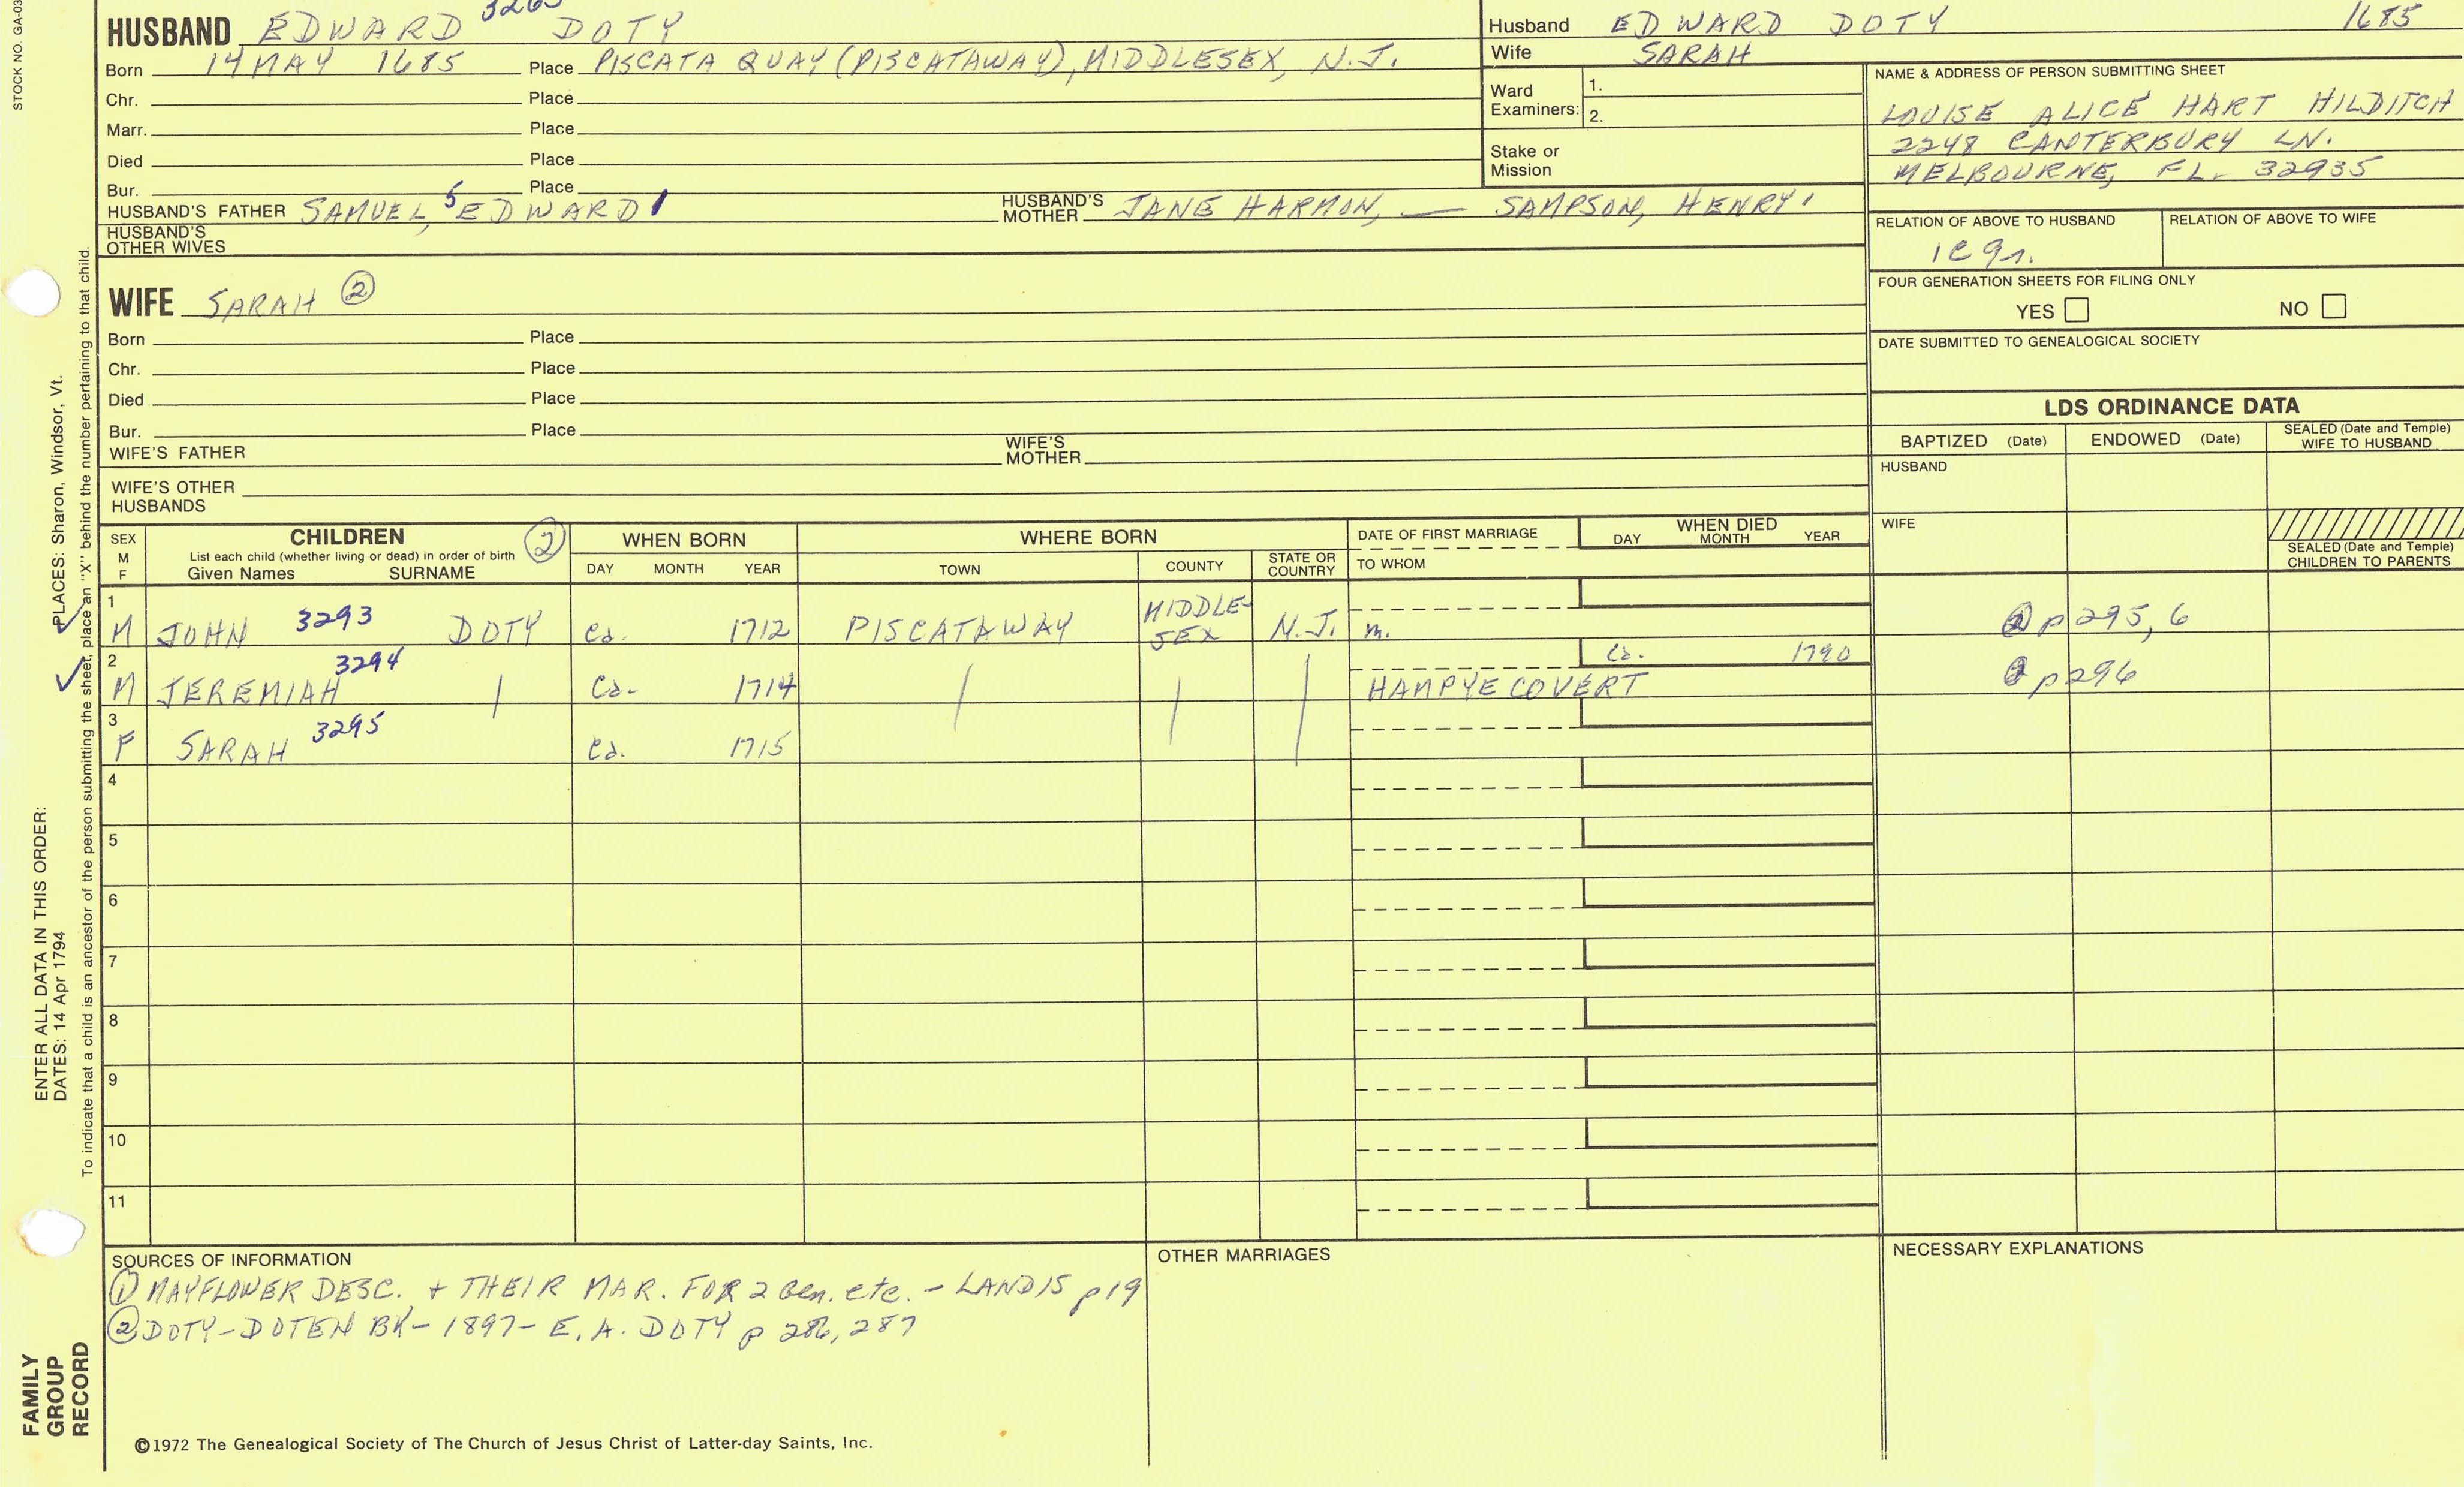 STOCK NO. GA-03
HUSBAND EDWARD DOTY
Born 14 MAY 1685 Place PISCATA QUAY (PISCATAWAY), MIDDLESEX, N.J.
Chr. Place
Marr. Place
Died Place
Bur. Place
HUSBAND'S FATHER SAMUEL, 5 EDWARD 1 HUSBAND'S MOTHER JANE HARMON, — SAMPSON, HENRY '
HUSBAND'S
OTHER WIVES
WIFE SARAH ②
Born Place
Chr. Place
Died Place
Bur. Place
WIFE'S FATHER WIFE'S MOTHER
WIFE'S OTHER
HUSBANDS
Husband EDWARD DOTY 1685
Wife SARAH
Ward
Examiners:
1.
2.
Stake or
Mission
NAME & ADDRESS OF PERSON SUBMITTING SHEET
LOUISE ALICE HART HILDITCH
2248 CANTERBURY LN.
MELBOURNE, FL. 32935
RELATION OF ABOVE TO HUSBAND RELATION OF ABOVE TO WIFE
FOUR GENERATION SHEETS FOR FILING ONLY
YES NO
DATE SUBMITTED TO GENEALOGICAL SOCIETY
LDS ORDINANCE DATA
BAPTIZED (Date) ENDOWED (Date) SEALED (Date and Temple) WIFE TO HUSBAND
HUSBAND
WIFE
SEALED (Date and Temple)
CHILDREN TO PARENTS
SEX
M
F
CHILDREN ②
List each child (whether living or dead) in order of birth
Given Names SURNAME
WHEN BORN
DAY MONTH YEAR
WHERE BORN
TOWN COUNTY STATE OR COUNTRY
DATE OF FIRST MARRIAGE
TO WHOM
WHEN DIED
DAY MONTH YEAR
1 M JOHN 3293 DOTY Ca. 1712 PISCATAWAY MIDDLE-SEX N.J. m. p 295, 6
2 M JEREMIAH 3294 Ca. 1714 HAMPYE COVERT Ca. 1790 p 296
3 F SARAH 3295 Ca. 1715
4
5
6
7
8
9
10
11
SOURCES OF INFORMATION
① MAYFLOWER DESC. + THEIR MAR. FOR 2 Gen. etc. - LANDIS p 19
② DOTY-DOTEN BK - 1897 - E.A. DOTY p 286, 287
OTHER MARRIAGES
NECESSARY EXPLANATIONS
©1972 The Genealogical Society of The Church of Jesus Christ of Latter-day Saints, Inc.
FAMILY
GROUP
RECORD
ENTER ALL DATA IN THIS ORDER:
DATES: 14 Apr 1794
PLACES: Sharon, Windsor, Vt.
To indicate that a child is an ancestor of the person submitting the sheet, place an "X" behind the number pertaining to that child.